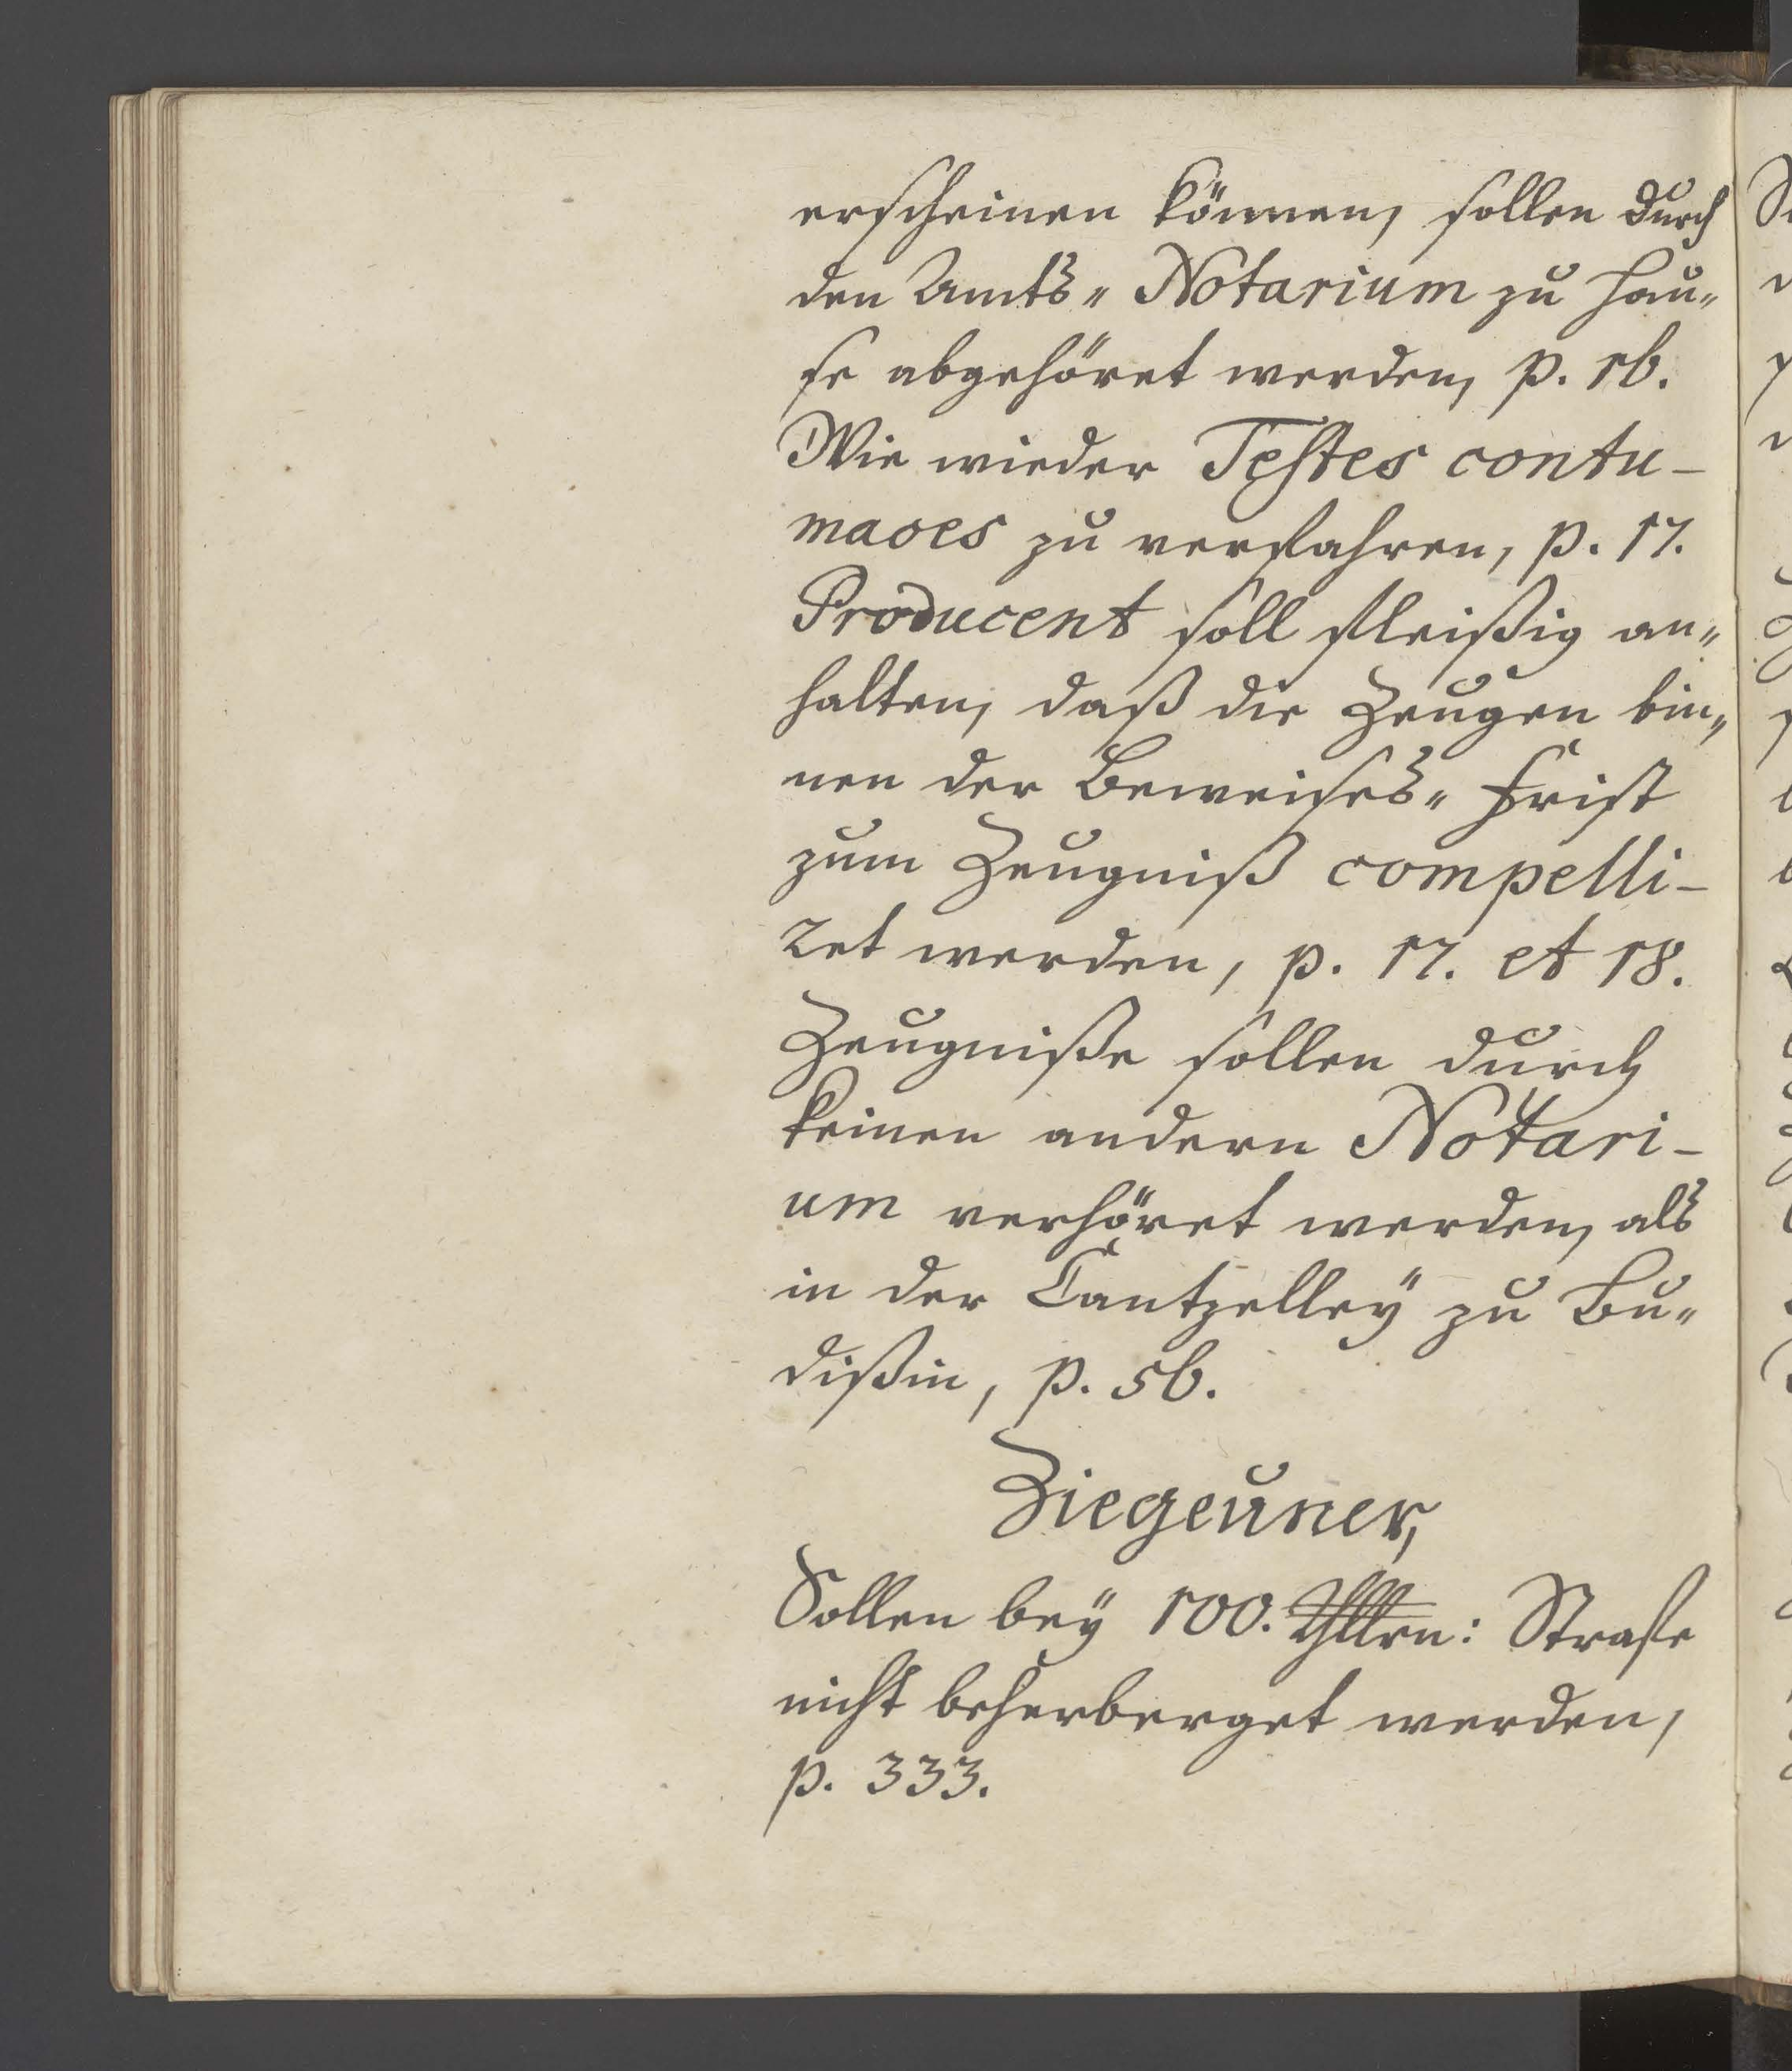 erscheinen können, sollen durch
den Amts- Notarium zu Hau-
se abgehöret werden, p. 16.
Wie wieder Testes contu-
maces zu verfahren, p. 17.
Producent soll fleißig an-
halten, daß die Zeugen bin-
nen der Beweises- Frist
zum Zeugniß compelli-
ret werden, p. 17. et 18.
Zeugniße sollen durch
keinen andern Notari-
um verhöret werden, als
in der Cantzelley zu Bu-
dißin, p. 56.
Ziegeuner,
Sollen bey 100. Thlrn: Strafe
nicht beherberget werden,
p. 333.